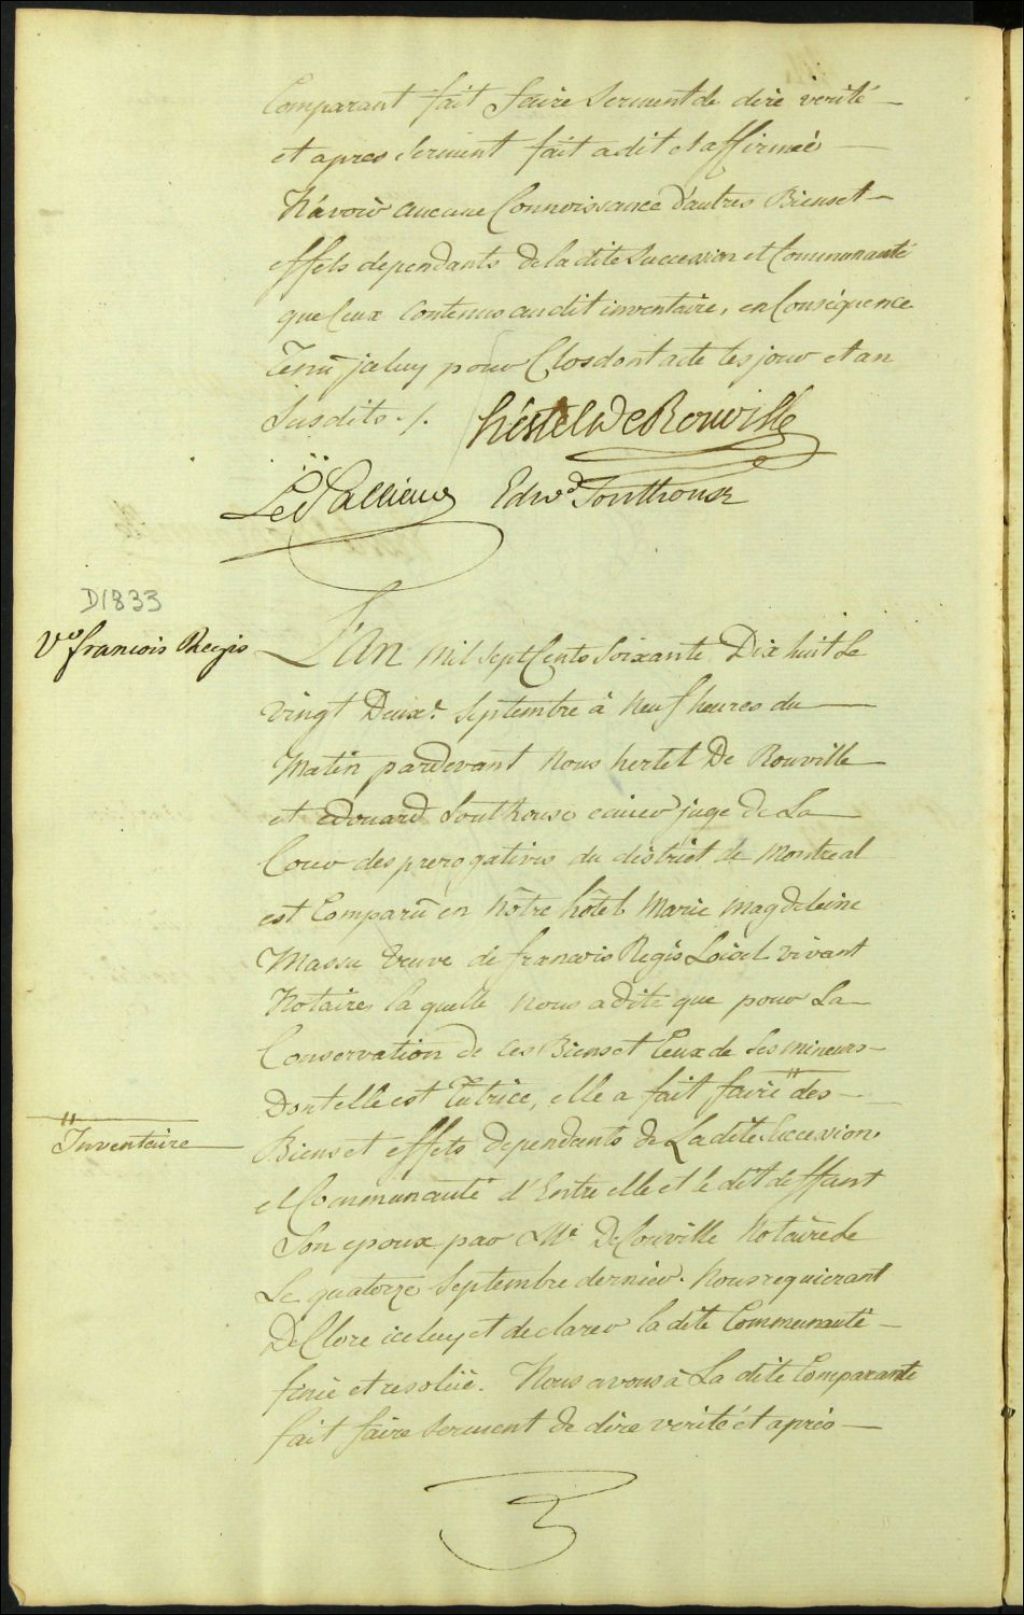 Comparant fait faire serment de dire verité
et apres serment fait a dit et affirmée
N'avoir aucune Connoissance d'autres Biens et
effets dependants de la dite Succession et Communauté
que Ceux Contenus audit inventaire, en Conséquence
Tenu iceluy pour Clos dont acte les jour et an
Susdits ./. hertel De Rouville
Le Pallieur Edwd Southouse
D1833
Ve francois Regis
L'An mil sept Cents soixante Dix huit Le
vingt Deuxe. Septembre à neuf heures du
Matin pardevant Nous hertel De Rouville
et edouard Southouse ecuier juge De La
Cour des prerogatives du district de Montreal
est Comparü en nôtre hôtel Marie magdeleine
Massu veuve de francois Regis Loisel vivant
Notaire, la quelle nous a dite que pour La
Conservation de ces Biens et Ceux de Ses mineurs
Dont elle est Tutrice, elle a fait faire " des
" Inventaire
Biens et effets dependants de La dite Succession
et Communauté d'Entre elle et le dit deffunt
Son epoux par Me. Notaire le
Le quatorze Septembre dernier. Nous requierant
De Clore iceluy et declarer la dite Communauté
finie et resoliie. Nous avons à La dite Comparante
fait faire serment de dire verité et après